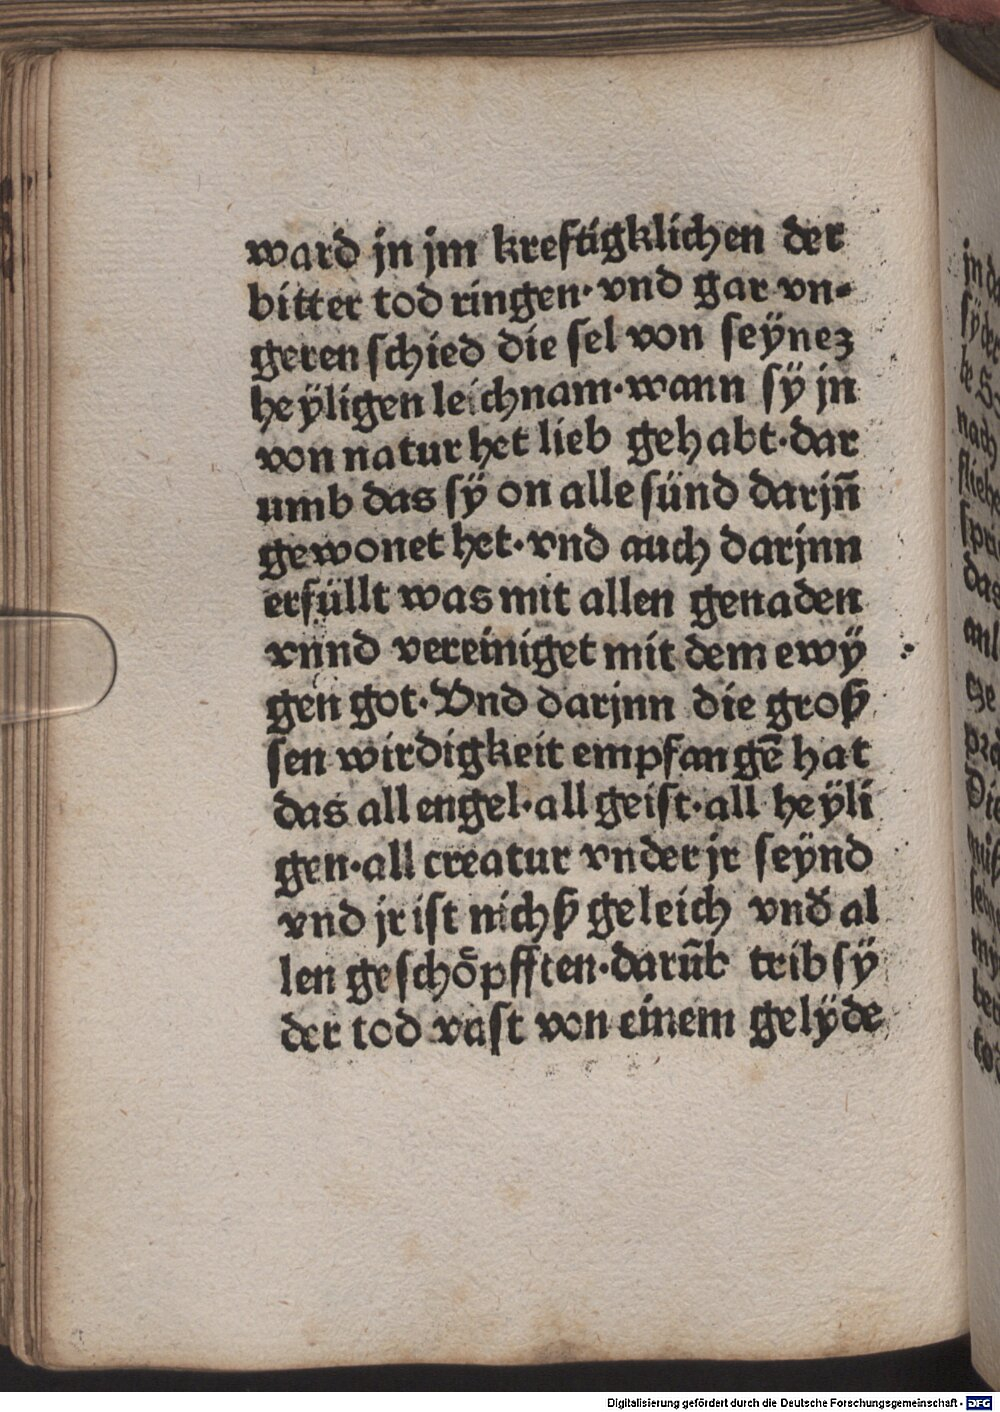 ward jn jm kreftigklichen der
bitter tod ringen· vnd gar vn⸗
geren schied die sel von seÿnez
heÿligen leichnam·wann sÿ jn
von natur het lieb gehabt·dar
umb das sÿ on alle sünd darjn̄
gewonet het·vnd auch darjnn
erfüllt was mit allen genaden
vnnd vereiniget mit dem ewÿ
gen got·Vnd darjnn die groß
sen wirdigkeit empfangē hat
das all engel·all geist·all heÿli
gen·all creatur vnder jr seÿnd
vnd jr ist nichß geleich vnd̄ al
len geschöpfften·darūb trib sÿ
der tod vast von einem gelÿde
Digitalisierung gefördert durch die Deutsche Forschungsgemeinschaft - DFG